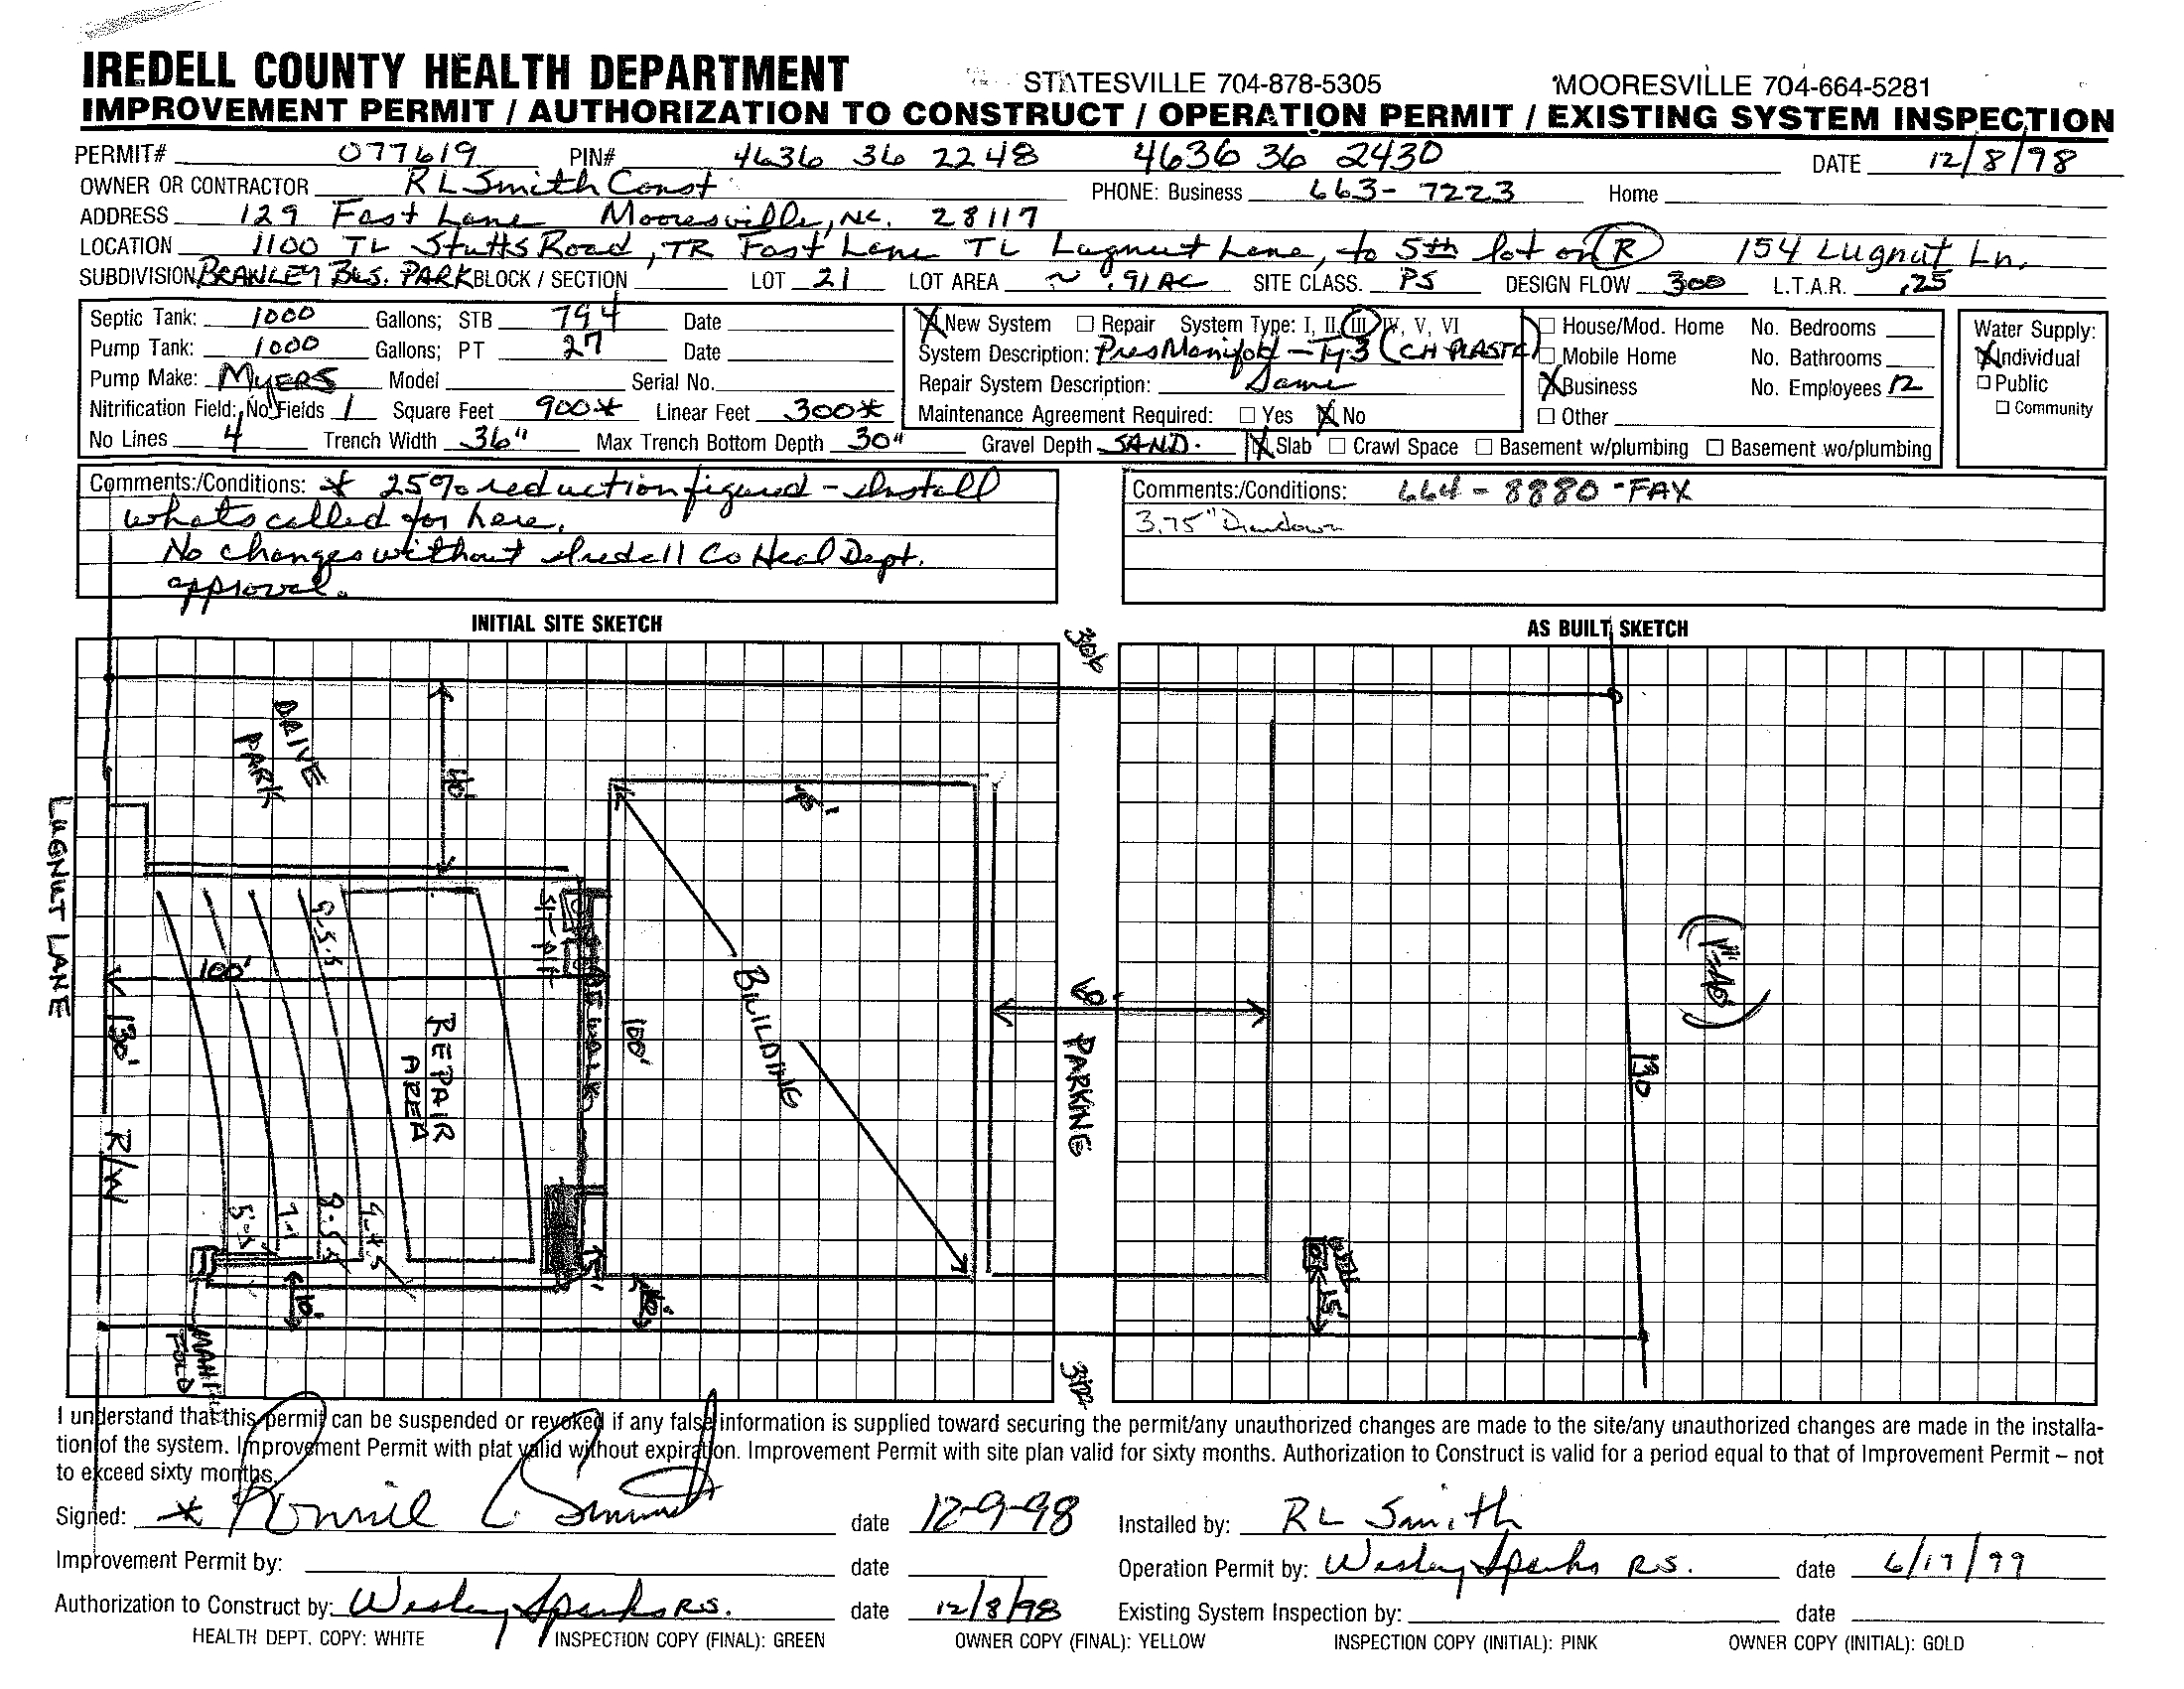 IREDELL COUNTY HEALTH DEPARTMENT STATESVILLE 704-878-5305 MOORESVILLE 704-664-5281
IMPROVEMENT PERMIT / AUTHORIZATION TO CONSTRUCT / OPERATION PERMIT / EXISTING SYSTEM INSPECTION
PERMIT# 077619 PIN# 4636 36 2248 4636 36 2430 DATE 12/8/98
OWNER OR CONTRACTOR R L Smith Const PHONE: Business 663-7223 Home
ADDRESS 129 Fast Lane Mooresville, NC. 28117
LOCATION 1100 TL Stutts Road, TR Fast Lane TL Lugnut Lane, to 5th lot on R 154 Lugnut Ln.
SUBDIVISION BRAWLEY BUS. PARK BLOCK / SECTION LOT 21 LOT AREA ~ .91 AC SITE CLASS. PS DESIGN FLOW 300 L.T.A.R. .25
Septic Tank: 1000 Gallons; STB 794 Date
Pump Tank: 1000 Gallons; PT 27 Date
Pump Make: MYERS Model Serial No.
Nitrification Field: No. Fields 1 Square Feet 900* Linear Feet 300*
No Lines 4 Trench Width 36" Max Trench Bottom Depth 30" Gravel Depth SAND.
X New System ☐ Repair System Type: I, II, III, IV, V, VI
System Description: Pres Manifold - Ty 3 (CH PLASTC)
Repair System Description: Same
Maintenance Agreement Required: ☐ Yes X No
X Slab ☐ Crawl Space ☐ Basement w/plumbing ☐ Basement wo/plumbing
☐ House/Mod. Home No. Bedrooms
☐ Mobile Home No. Bathrooms
X Business No. Employees 12
☐ Other
Water Supply:
X Individual
☐ Public
☐ Community
Comments:/Conditions: * 25% reduction figured - Install
whats called for here.
No changes without Iredell Co Heal Dept.
approval.
Comments:/Conditions: 664-8880-FAX
3.75" Drawdown
INITIAL SITE SKETCH
AS BUILT SKETCH
306
DRIVE
PARK
40'
LUGNUT LANE
9.5.5
100'
130'
R/W
REPAIR
AREA
100'
BUILDING
60'
PARKING
(1"=40')
130
5-5
9-1
8.5
9-4.5
15'
10'
10'
WELL
15'
MANIFOLD
312
I understand that this permit can be suspended or revoked if any false information is supplied toward securing the permit/any unauthorized changes are made to the site/any unauthorized changes are made in the installa-
tion of the system. Improvement Permit with plat valid without expiration. Improvement Permit with site plan valid for sixty months. Authorization to Construct is valid for a period equal to that of Improvement Permit – not
to exceed sixty months.
Signed: * Ronnie L Smith date 12-9-98 Installed by: RL Smith
Improvement Permit by: date Operation Permit by: Wesley Sparks R.S. date 6/17/99
Authorization to Construct by: Wesley Sparks R.S. date 12/8/98 Existing System Inspection by: date
HEALTH DEPT. COPY: WHITE INSPECTION COPY (FINAL): GREEN OWNER COPY (FINAL): YELLOW INSPECTION COPY (INITIAL): PINK OWNER COPY (INITIAL): GOLD